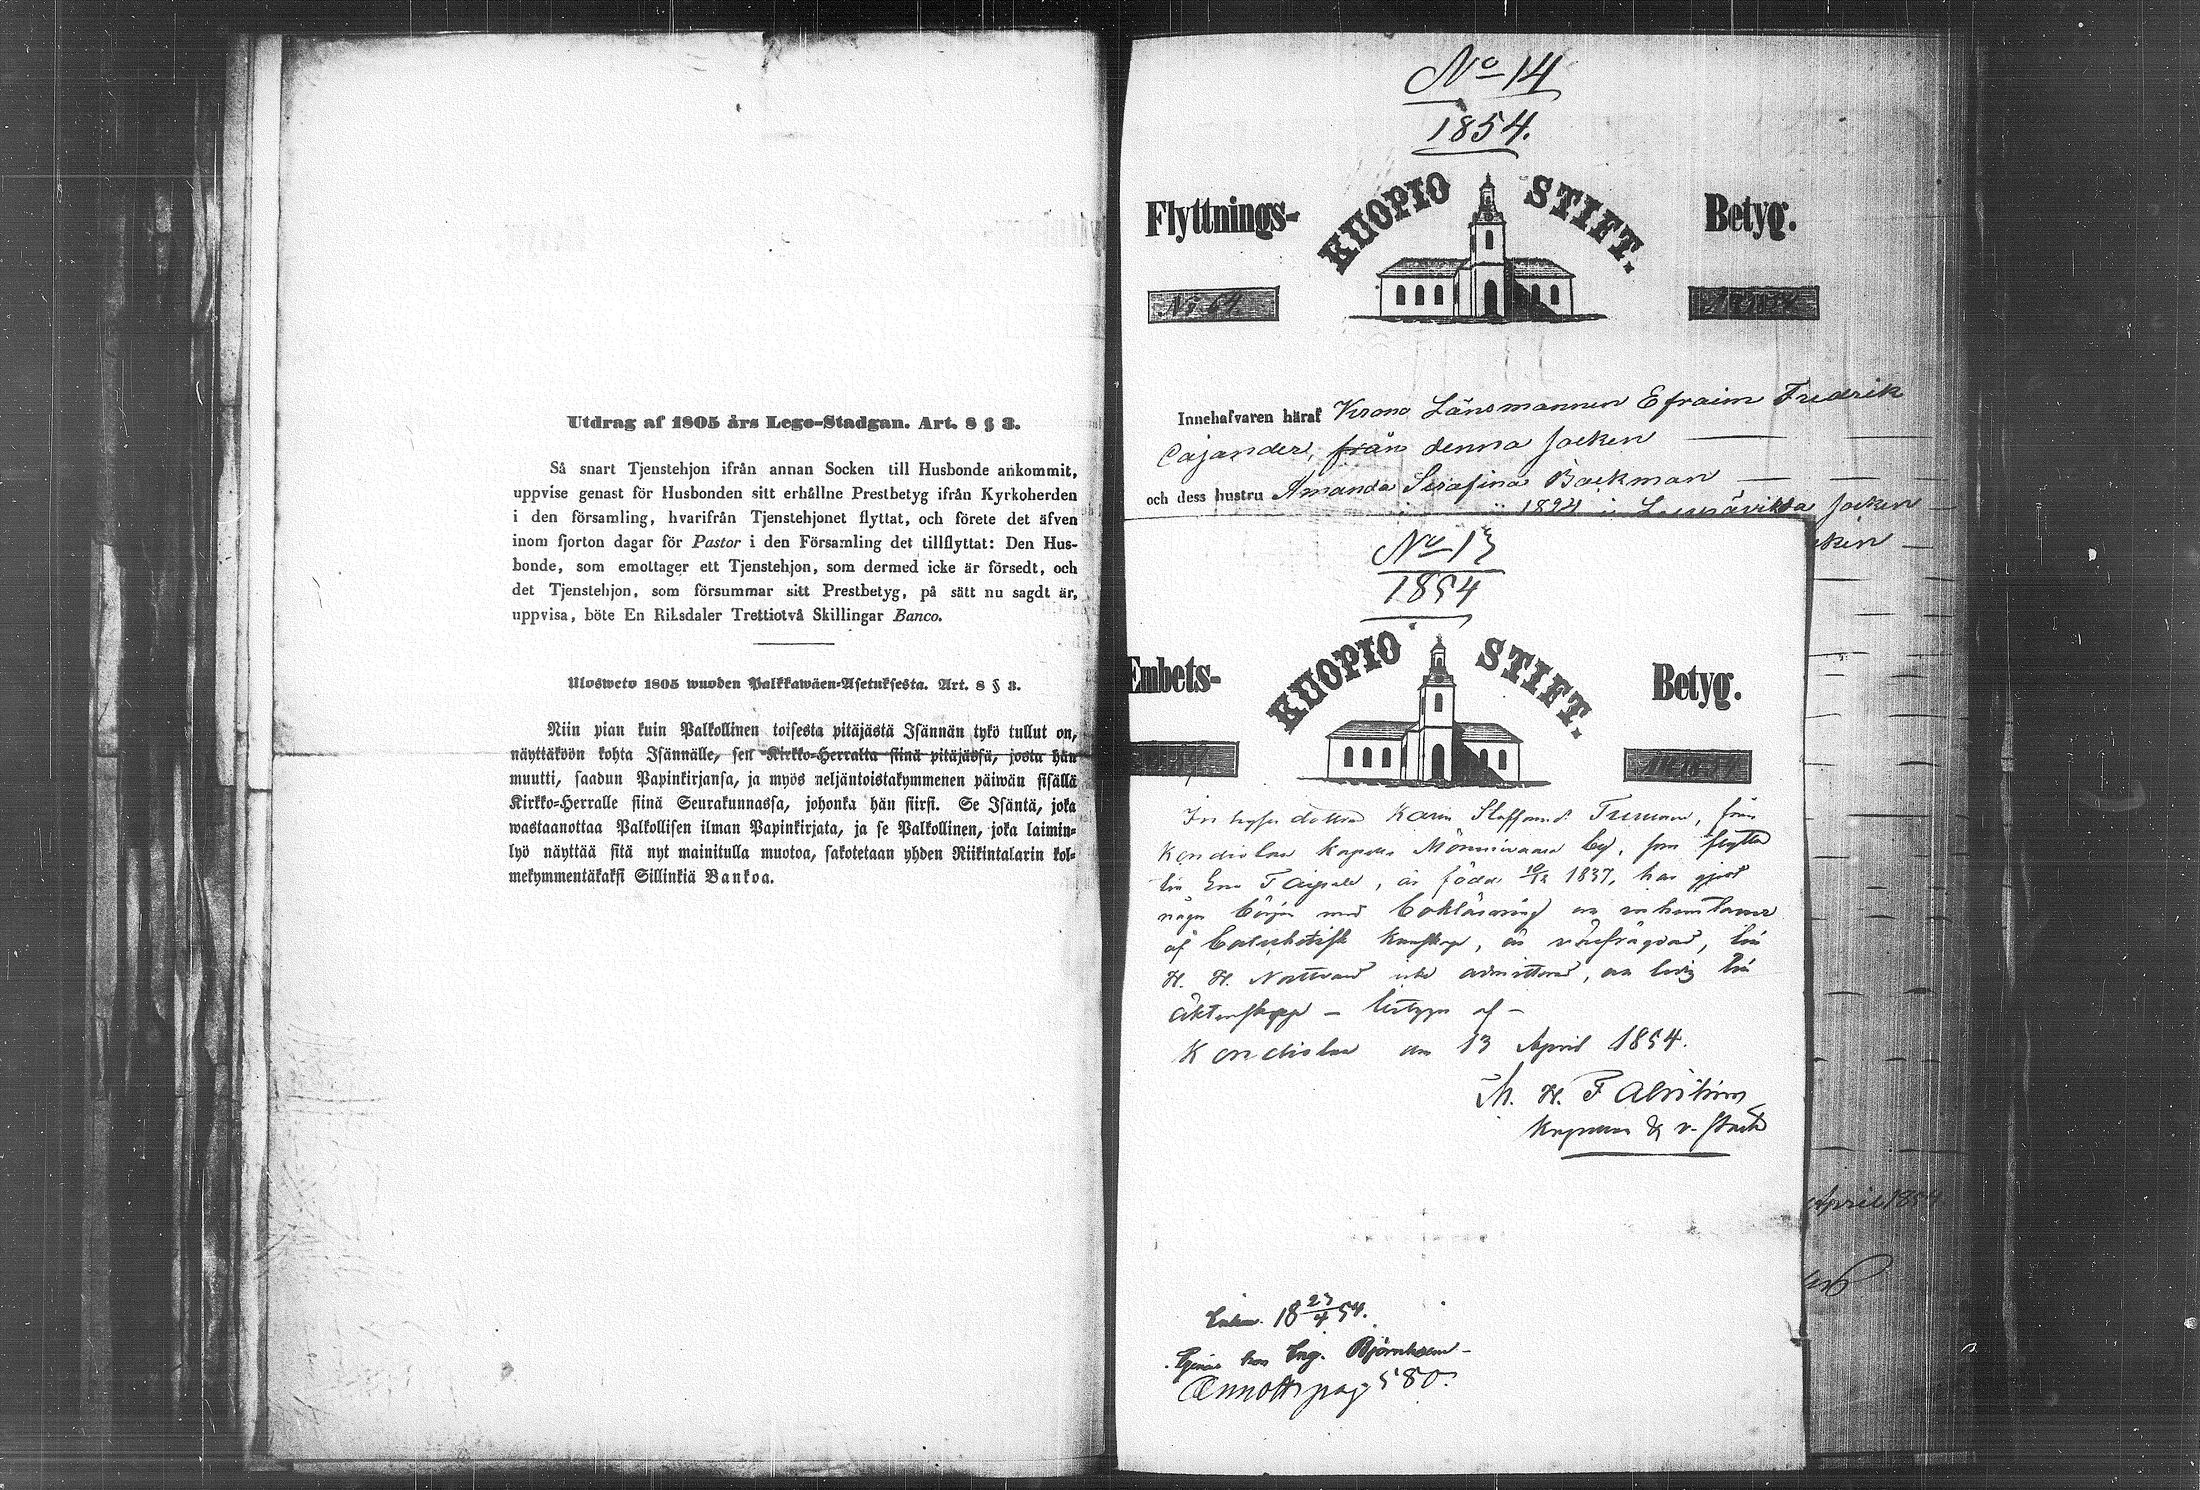 Utdrag af 1805 års Lego-Stadgan. Art. 8 § 3.
Så snart Tjenstehjon ifrån annan Socken till Husbonde ankommit,
uppvise genast för Husbonden sitt erhållne Prestbetyg ifrån Kyrkoherden
i den församling, hvarifrån Tjenstehjonet flyttat, och förete det äfven
inom fjorton dagar för Pastor i den Församling det tillflyttat: Den Hus-
bonde, som emottager ett Tjenstehjon, som dermed icke är försedt, och
det Tjenstehjon, som försummar sitt Prestbetyg, på sätt nu sagdt är,
uppvisa, böte En Riksdaler Trettiotvå Skillingar Banco.
Ulosweto 1805 wuoden Palkkawäen-Asetuksesta. Art. 8 § 3.
Niin pian kuin Palkollinen toisesta pitäjästä Isännän tykö tullut on,
näyttäköön kohta Isännälle, sen Kirkko-Herralta siinä pitäjässä, josta hän
muutti, saadun Papinkirjansa, ja myös neljäntoistakymmenen päiwän sisällä
Kirkko-Herralle siinä Seurakunnassa, johonka hän siirsi. Se Isäntä, joka
wastaanottaa Palkollisen ilman Papinkirjata, ja se Palkollinen, joka laimin-
lyö näyttää sitä nyt mainitulla muotoa, sakotetaan yhden Riikintalarin kol-
mekymmentäkaksi Sillinkiä Bankoa.
No 14
1854.
Flyttnings- KUOPIO STIFT. Betyg.
Innehafvaren häraf Krono Länsmannen Efraim Fredrik
Cajander, från denna Socken
och dess hustru Amanda Serafina Backman
Socken
No 13
1854
Embets- KUOPIO STIFT. Betyg.
dottren Karin Staffansd. Turunen, från
Kondiolax Kapells Mönnivaara by, som flyttar
till Eno, är född 10/12 1837, har gjort
någon början med bokläsning
af
H. H. Nattvard icke admitterad, ledig till
Äktenskap – betygar af –
Kondiolax den 13 April 1854.
April 1854
18 23/4 54.
hos Björnholm
Annott. pag 580.